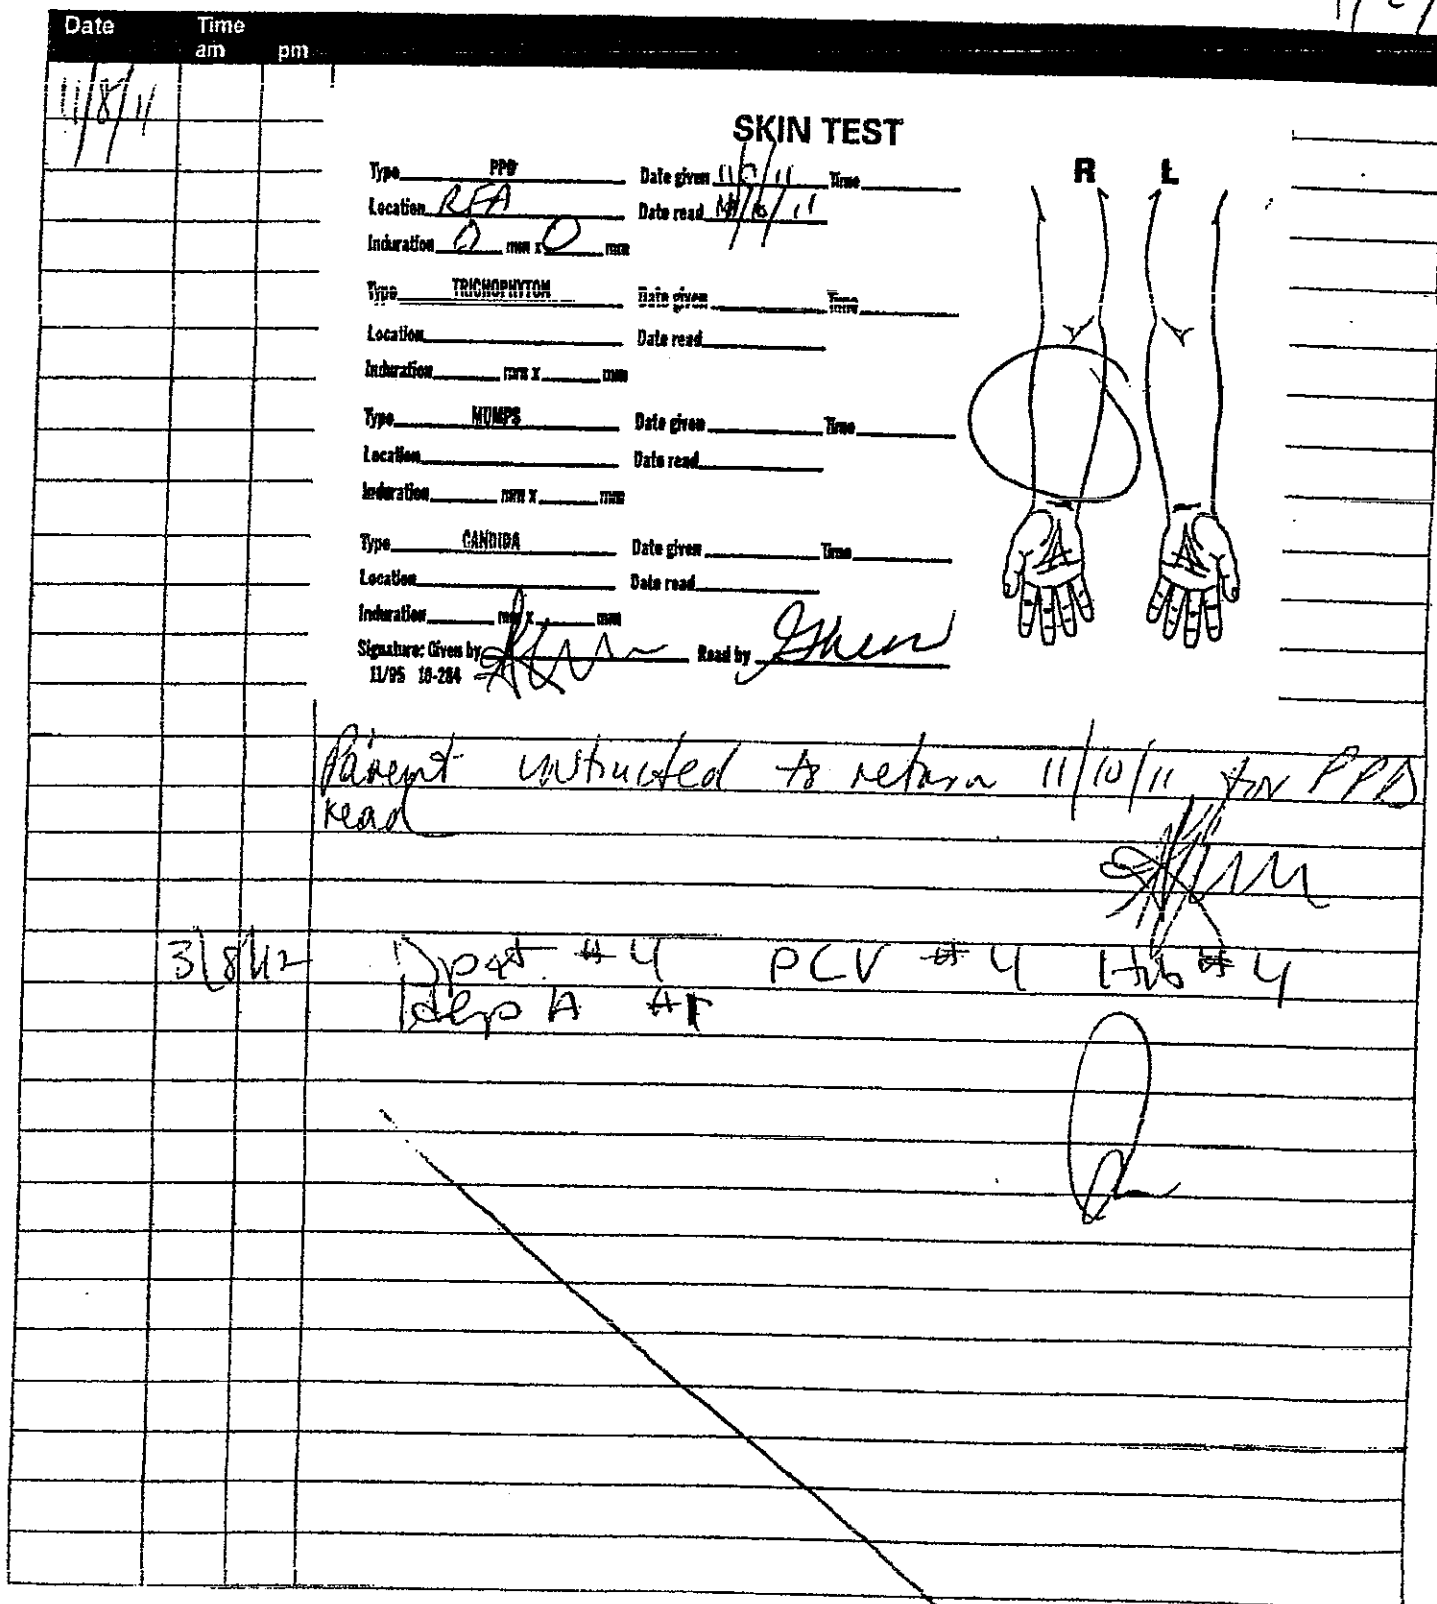 Date Time
am pm
11/8/11
SKIN TEST
Type PPD Date given 11/8/11 Time
R L
Location RFA Date read 11/10/11
Induration 0 mm x 0 mm
Type TRICHOPHYTON Date given Time
Location Date read
Induration mm x mm
Type MUMPS Date given Time
Location Date read
Induration mm x mm
Type CANDIDA Date given Time
Location Date read
Induration mm x mm
Signature: Given by Read by
11/95 18-284
Parent instructed to return 11/10/11 for PPD
read
3/8/12 Dpat #4 PCV #4 Hib #4
Hep A #1